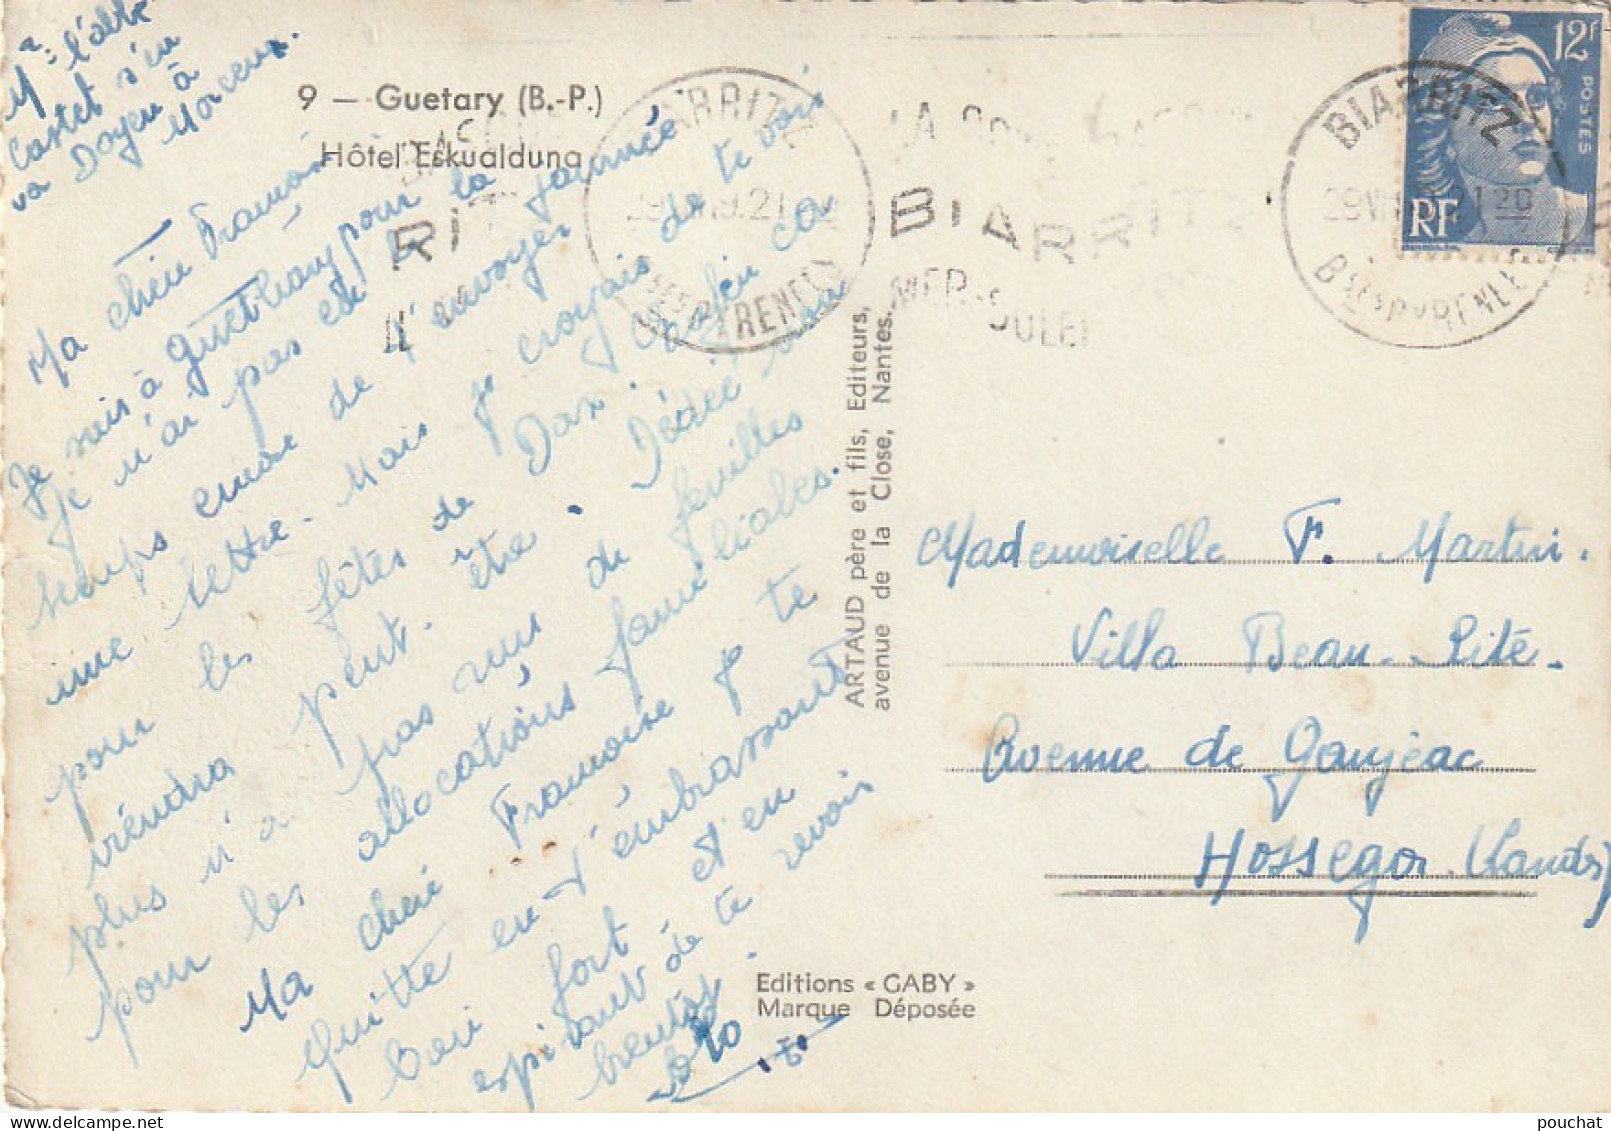 Mr l'abbé
Castet s'en
va Doyen à
Morcenx.
9 — Guetary (B.-P.)
Hôtel Eskualduna
Ma chère Françoise
Je suis à Guethary pour la journée
Je n'ai pas eu le
temps encore de t'envoyer
une lettre. Mais je croyais de te voir
pour les fêtes de Dax. Enfin ça
viendra peut-être. Dédée
plus n'a pas vu de feuilles
pour les allocations familiales.
Ma chère Françoise je te
quitte en t'embrassant
bien fort et en
espérant de te revoir
bientôt
ARTAUD père et fils, Editeurs,
avenue de la Close, Nantes.
Editions « GABY »
Marque Déposée
BIARRITZ
BSES PYRENEES
BIARRITZ
MER-SOLEIL
12F
POSTES
RF
BIARRITZ
BSES PYRENEES
Mademoiselle F. Martin.
Villa Beau-Site.
Avenue de Gaujeac
Hossegor (Landes)
pouchat